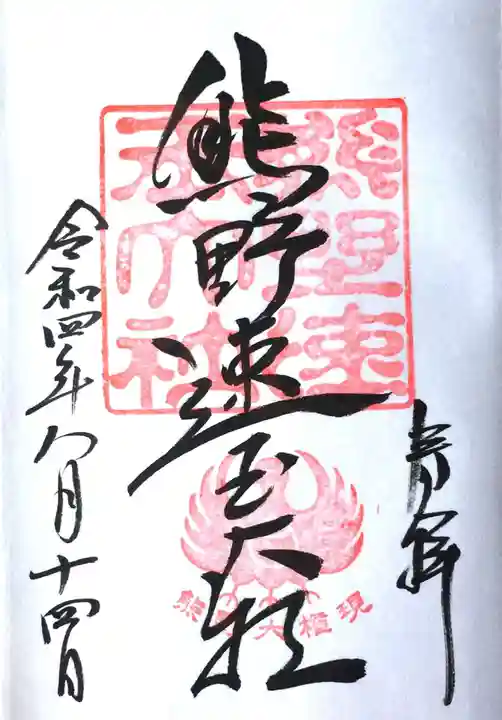 奉拝
熊野速玉大社
令和四年八月十四日
熊野速玉大社
熊野大権現